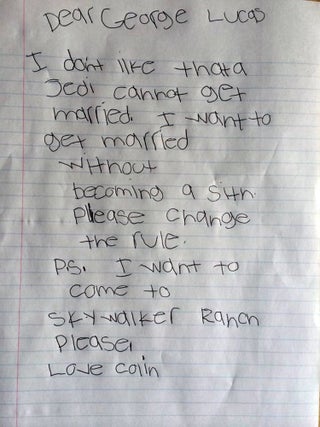 Dear George Lucas
I dont like that a
Jedi cannot get
married. I want to
get married
without
becoming a Sith.
Please change
the rule.
PS. I want to
come to
Skywalker Ranch
Please,
Love Colin